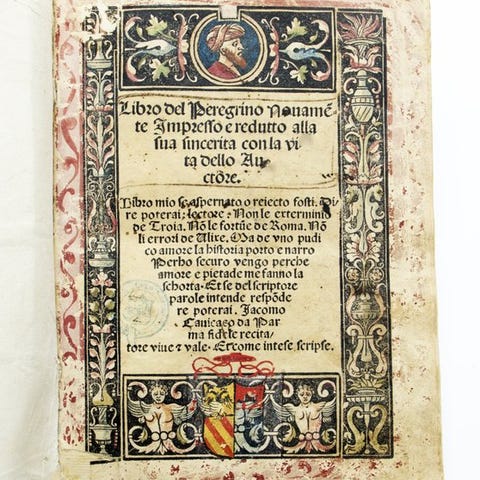 Libro del Peregrino Novamē
te Impresso e redutto alla
sua sincerita con la vi
ta dello Au-
ctōre.
Libro mio se aspernato o reiecto fosti. Di
re poterai: lectore. Non le exterminio
de Troia. Nō le fortūe de Roma. Nō
li errori de Ulixe. Ma de vno pudi
co amore la historia porto e narro
Perho securo vengo perche
amore e pietade me fanno la
schorta. Et se del scriptore
parole intende respōde
re poterai. Jacomo
Cauiceo da Par
ma fidele recita/
tore viue ⁊ vale. Et come intese scripse.